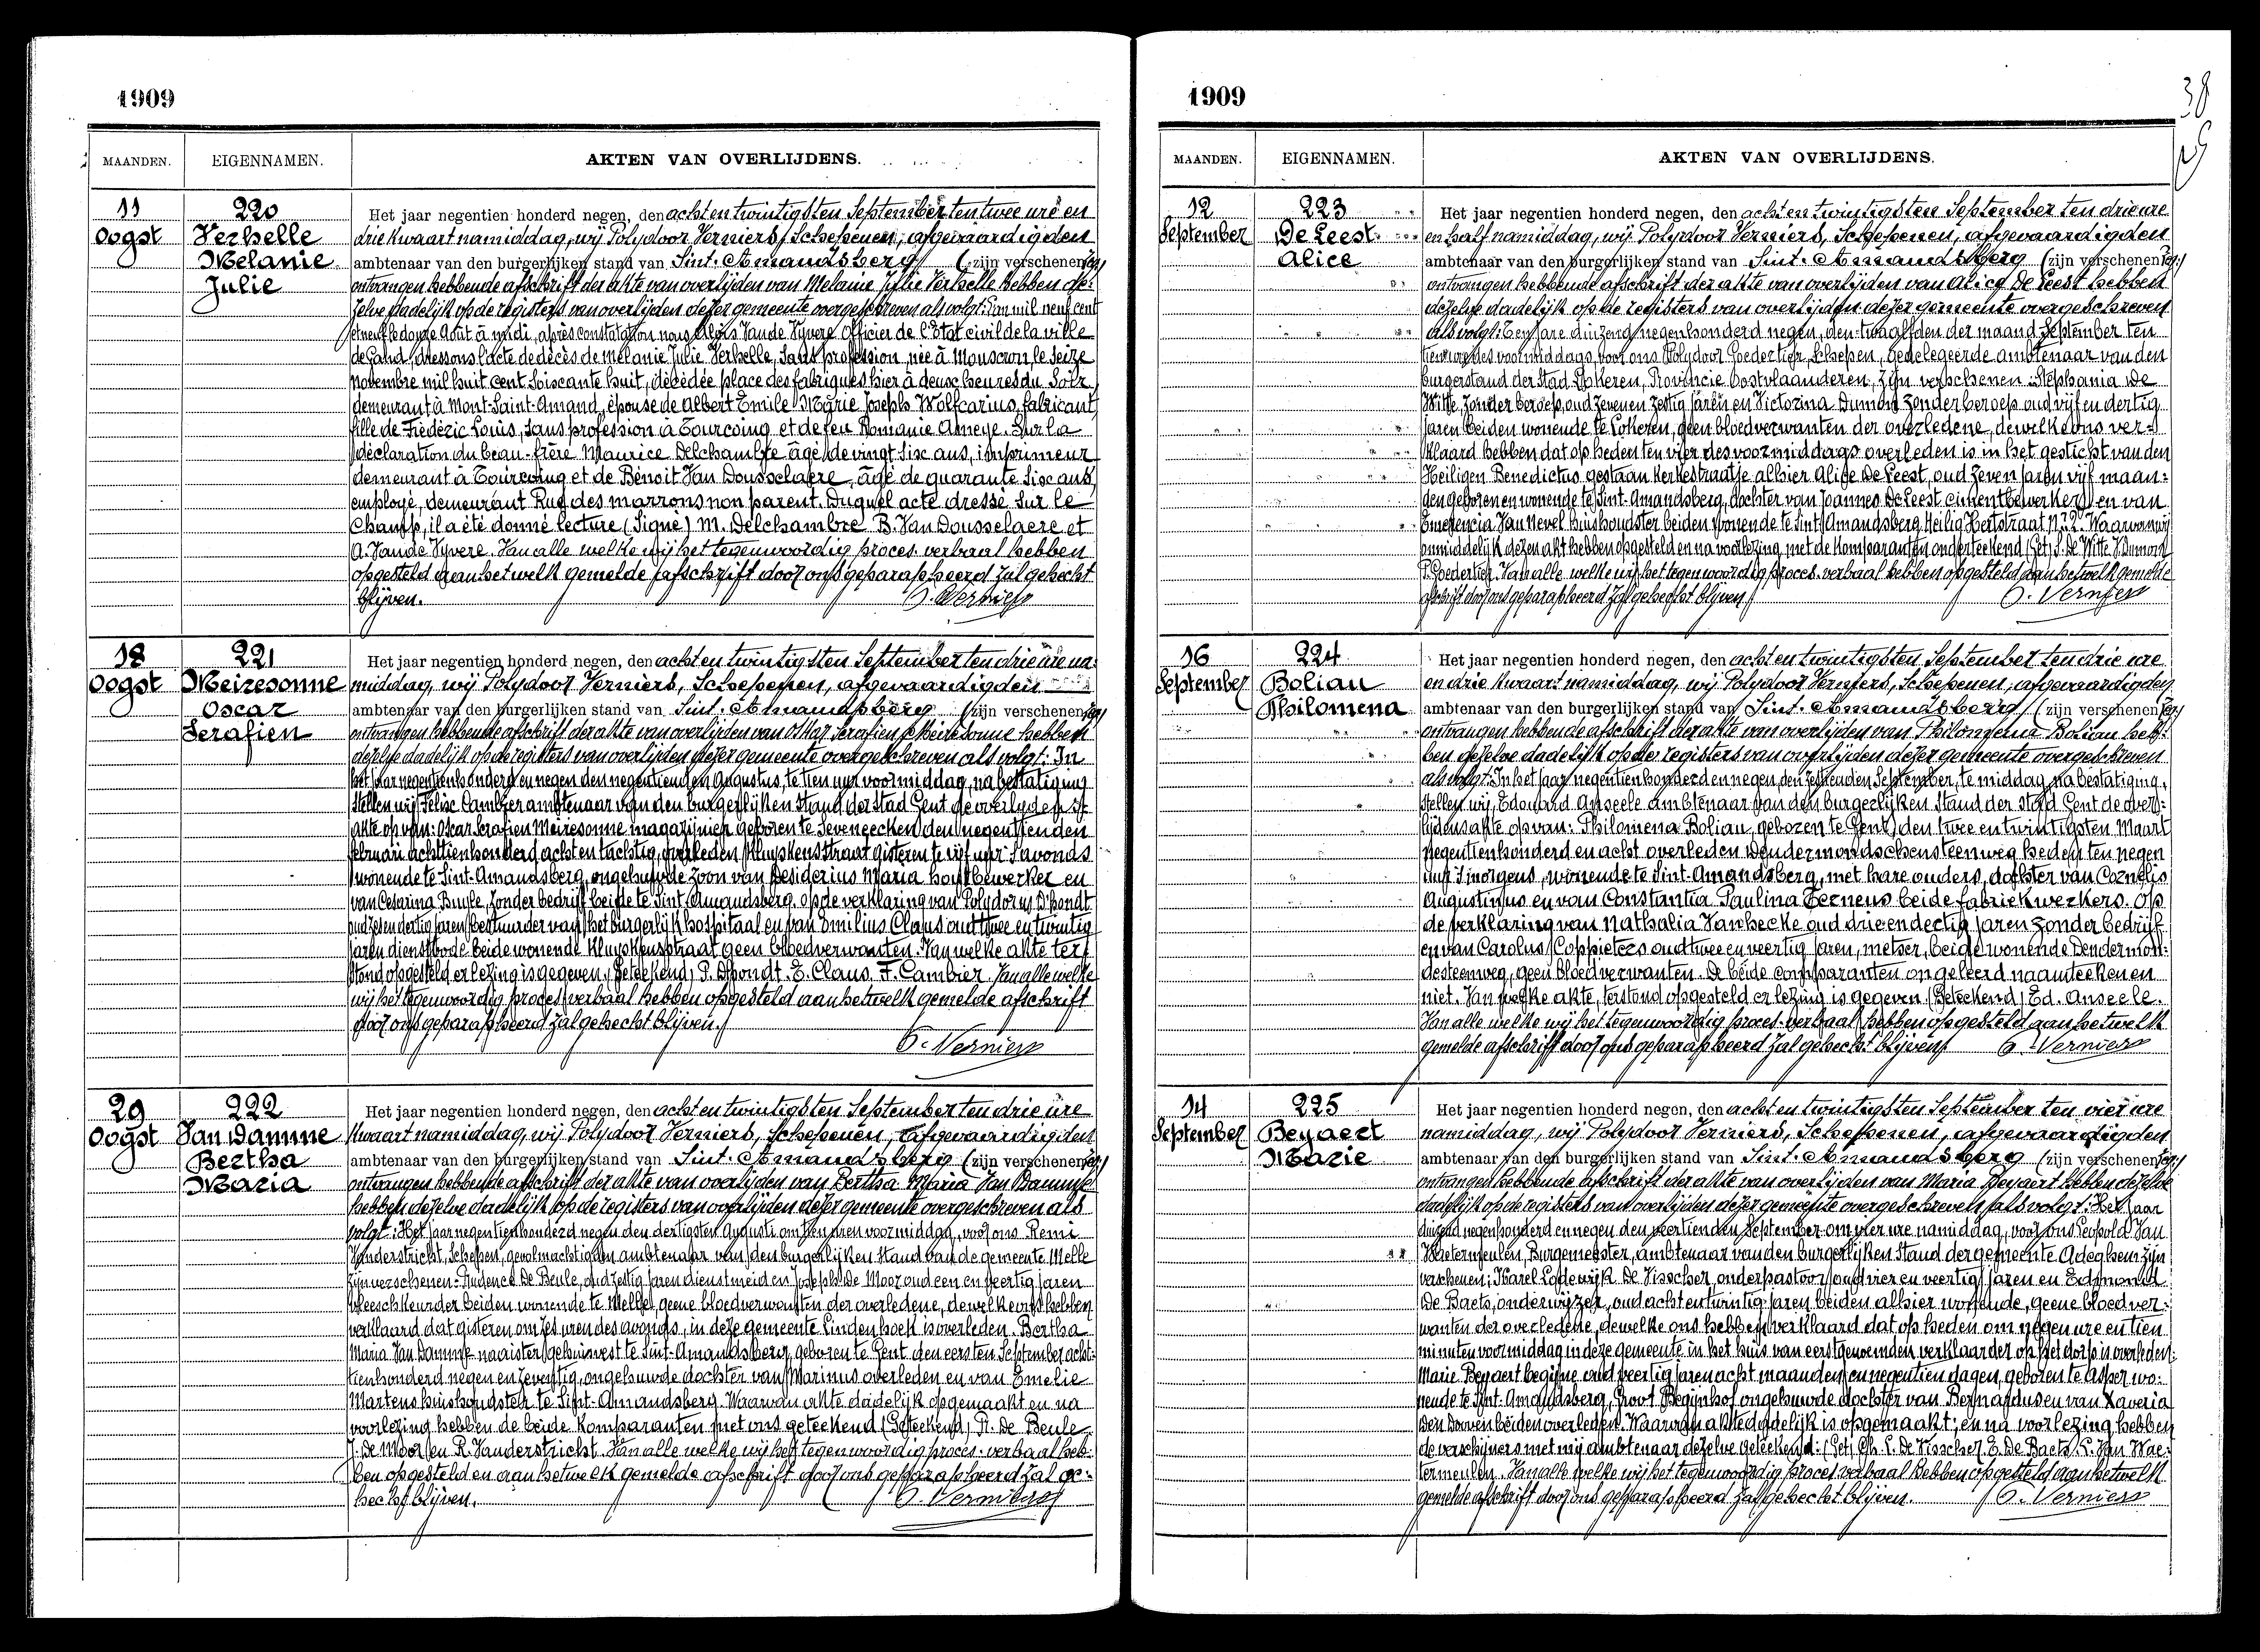 1909
MAANDEN. EIGENNAMEN. AKTEN VAN OVERLIJDENS.
11 Oogst
220
Verhelle
Melanie
Julie
Het jaar negentien honderd negen, den acht en twintigsten September ten twee ure en
drie kwaart namiddag, wij Polydoor Verniers, Schepenen, afgevaardigden
ambtenaar van den burgerlijken stand van Sint-Amandsberg (zijn verschenen
ontvangen hebbende afschrift der akte van overlijden van Melanie Julie Verhelle hebben de-
zelve dadelijk op de registers van overlijden dezer gemeente overgeschreven als volgt: L'an mil neuf cent
et neuf le douze Août à midi, après constatation nous Aloïs Vande Vyvere Officier de l'Etat civil de la ville
de Gand, dressons l'acte de décès de Mélanie Julie Verhelle, sans profession, née à Mouscron le seize
novembre mil huit cent soixante huit, décédée place des fabriques hier à deux heures du soir
demeurant à Mont-Saint-Amand, épouse de Albert Emile Marie Joseph Wolfcarius, fabricant
fille de Frédéric Louis, sans profession à Tourcoing et de feu Romanie Ameye. Sur la
déclaration du beau-frère Maurice Delchambre âgé de vingt six ans, imprimeur
demeurant à Tourcoing et de Benoit Van Dousselaere, âgé de quarante six ans,
employé, demeurant Rue des marrons non parent. Duquel acte dressé sur le
Champ, il a été donné lecture (Signé) M. Delchambre B. Van Dousselaere et
A. Vande Vyvere. Van alle welke wij het tegenwoordig proces-verbaal hebben
opgesteld aan hetwelk gemelde afschrift door ons geparapheerd zal gehecht
blijven. P. Verniers
18 Oogst
221
Meiresonne
Oscar
Serafien
Het jaar negentien honderd negen, den acht en twintigsten September ten drie ure na-
middag, wij Polydoor Verniers, Schepenen, afgevaardigden
ambtenaar van den burgerlijken stand van Sint-Amandsberg (zijn verschenen
ontvangen hebbende afschrift der akte van overlijden van Oskar Serafien Meiresonne hebben
dezelve dadelijk op de registers van overlijden dezer gemeente overgeschreven als volgt: In
het jaar negentienhonderd en negen den negentienden Augustus, te tien uur voormiddag, na bestatiging
stellen wij Felix Cambier ambtenaar van den burgerlijken stand der stad Gent de overlijdenst
akte op van: Oscar Serafien Meiresonne magazijnier geboren te Seveneecken den negentienden
februari achttienhonderd acht en tachtig, overleden Kluyskensstraat gisteren te vijf uur 's avonds
wonende te Sint-Amandsberg, ongehuwde zoon van Desiderius Maria houtbewerker en
van Cesarina Buyle, zonder bedrijf beide te Sint Amandsberg. Op de verklaring van Polydorus D'hondt
oud zes en dertig jaren bestuurder van het burgerlijk hospitaal en van Emilius Claus oud twee en twintig
jaren dienstbode beide wonende Kluyskensstraat geen bloedverwanten. Van welke akte ter
stond opgesteld er lezing is gegeven. (Geteekend) P. Dhondt. E. Claus. F. Cambier. Van alle welke
wij het tegenwoordig proces verbaal hebben opgesteld aan hetwelk gemelde afschrift
door ons geparapheerd zal gehecht blijven.
P. Verniers
29 Oogst
222
Van Damme
Bertha
Maria
Het jaar negentien honderd negen, den acht en twintigsten September ten drie ure
kwaart namiddag, wij Polydoor Verniers, Schepenen, afgevaardigden
ambtenaar van den burgerlijken stand van Sint-Amandsberg (zijn verschenen
ontvangen hebbende afschrift der akte van overlijden van Bertha Maria Van Damme
hebben dezelve dadelijk op de registers van overlijden dezer gemeente overgeschreven als
volgt: Het jaar negentienhonderd negen den dertigsten Augusti om tien uren voormiddag, voor ons Remi
Vanderstricht, Schepen, gevolmachtigden ambtenaar van den burgerlijken stand van de gemeente Melle
zijn verschenen: Prudence De Beule, oud zestig jaren dienstmeid en Joseph De Moor oud een en veertig jaren
vleeschkeurder beiden wonende te Melle, geene bloedverwanten der overledene, dewelke ons hebben
verklaard dat gisteren om zes uren des avonds, in deze gemeente Lindenhoek is overleden Bertha
Maria Van Damme naaister gehuisvest te Sint-Amandsberg, geboren te Gent den eersten September acht-
tienhonderd negen en zeventig, ongehuwde dochter van Marinus overleden en van Emelie
Martens huishoudster te Sint-Amandsberg. Waarvan akte dadelijk opgemaakt en na
voorlezing hebben de beide komparanten met ons geteekend (Geteekend) Pr. De Beule
J. De Moor en R. Vanderstricht. Van alle welke wij het tegenwoordig proces-verbaal heb-
ben opgesteld en aan hetwelk gemelde afschrift door ons geparapheerd zal ge-
hecht blijven. P. Verniers
1909
38
MAANDEN. EIGENNAMEN. AKTEN VAN OVERLIJDENS.
12 September
223
De Leest
Alice
Het jaar negentien honderd negen, den acht en twintigsten September ten drie ure
en half namiddag, wij Polydoor Verniers, Schepenen, afgevaardigden
ambtenaar van den burgerlijken stand van Sint-Amandsberg (zijn verschenen
ontvangen hebbende afschrift der akte van overlijden van Alice De Leest hebben
dezelve dadelijk op de registers van overlijden dezer gemeente overgeschreven
als volgt: Ten jare duizend negenhonderd negen, den twaalfden der maand September ten
tien ure des voormiddags voor ons Polydoor Goedertier, Schepen, gedelegeerde ambtenaar van den
burgerstand der stad Lokeren, Provincie Oostvlaanderen, zijn verschenen: Stephania De
Witte, zonder beroep, oud zeven en zestig jaren en Victorina Dumont zonder beroep oud vijf en dertig
jaren beiden wonende te Lokeren, geen bloedverwanten der overledene, dewelke ons ver-
klaard hebben dat op heden ten vier des voormiddags overleden is in het gesticht van den
Heiligen Benedictus gestaan Kerkestraatje alhier Alice De Leest, oud zeven jaren vijf maan-
den geboren en wonende te Sint-Amandsberg, dochter van Joannes De Leest cimentbewerker en van
Emerencia Van Nevel huishoudster beiden wonende te Sint Amandsberg Heilig Hertstraat N: 2. Waarvan wij
onmiddelijk dezen akt hebben opgesteld en na voorlezing met de komparanten onderteekend (Get) S. De Witte V. Dumont
P. Goedertier. Van alle welke wij het tegenwoordig proces-verbaal hebben opgesteld aan hetwelk gemelde
afschrift door ons geparapheerd zal gehecht blijven. P. Verniers
16 September
224
Boliau
Philomena
Het jaar negentien honderd negen, den acht en twintigsten September ten drie ure
en drie kwaart namiddag, wij Polydoor Verniers, Schepenen, afgevaardigden
ambtenaar van den burgerlijken stand van Sint-Amandsberg (zijn verschenen
ontvangen hebbende afschrift der akte van overlijden van Philomena Boliau heb-
ben dezelve dadelijk op de registers van overlijden dezer gemeente overgeschreven
als volgt: In het jaar negentienhonderd en negen, den zestienden September, te middag, na bestatiging,
stellen wij, Edouard Anseele ambtenaar van den burgerlijken stand der stad Gent de over-
lijdensakte op van: Philomena Boliau, geboren te Gent, den twee en twintigsten Maart
negentienhonderd en acht overleden Dendermondschensteenweg heden ten negen
uur 's morgens, wonende te Sint-Amandsberg, met hare ouders, dochter van Cornelis
Augustinus en van Constantia Paulina Terneus beide fabriekwerkers. Op
de verklaring van Nathalia Vanhecke oud drie en dertig jaren zonder bedrijf
en van Carolus Coppieters oud twee en veertig jaren, metser, beide wonende Dendermon-
desteenweg, geen bloedverwanten. De beide comparanten ongeleerd naamteekenen
niet. Van welke akte, terstond opgesteld er lezing is gegeven. (Geteekend) Ed. Anseele.
Van alle welke wij het tegenwoordig proces-verbaal hebben opgesteld aan hetwelk
gemelde afschrift door ons geparapheerd zal gehecht blijven. P. Verniers
14 September
225
Beyaert
Marie
Het jaar negentien honderd negen, den acht en twintigsten September ten vier ure
namiddag, wij Polydoor Verniers, Schepenen, afgevaardigden
ambtenaar van den burgerlijken stand van Sint-Amandsberg (zijn verschenen
ontvangen hebbende afschrift der akte van overlijden van Maria Beyaert hebben dezelve
dadelijk op de registers van overlijden dezer gemeente overgeschreven als volgt: Het jaar
duizend negenhonderd en negen den veertienden September om vier ure namiddag, voor ons Leopold Van
Waetermeulen, Burgemeester, ambtenaar van den burgerlijken stand der gemeente Adeghem zijn
verschenen: Karel Lodewijk De Visscher, onderpastoor, oud vier en veertig jaren en Edmond
De Baets, onderwijzer, oud acht en twintig jaren beiden alhier wonende, geene bloedver-
wanten der overledene, dewelke ons hebben verklaard dat op heden om negen ure en tien
minuten voormiddag in deze gemeente, in het huis van eerstgenoemden verklaarder op het dorp is overleden:
Marie Beyaert begijne oud veertig jaren acht maanden en negentien dagen, geboren te Asper wo-
nende te Sint-Amandsberg, Groot Begijnhof ongehuwde dochter van Bernardus en van Xaveria
Den Doven beiden overleden. Waarvan akte dadelijk is opgemaakt; en na voorlezing hebben
de verschijners met mij ambtenaar dezelve geteekend: (Get) Ch. L. De Visscher. E. De Baets. L. Van Wae-
termeulen. Van alle welke wij het tegenwoordig proces verbaal hebben opgesteld aan hetwelk
gemelde afschrift door ons geparapheerd zal gehecht blijven. P. Verniers